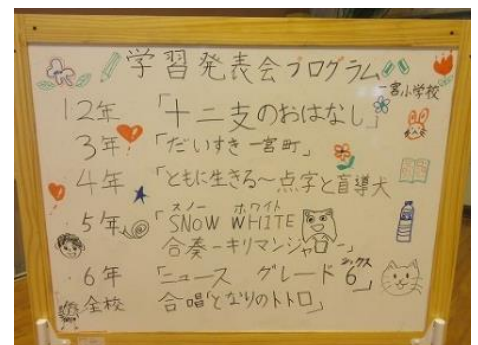 学習発表会プログラム
一宮小学校
1 2年 「十二支のおはなし」
3年 「だいすき一宮町」
4年 「ともに生きる〜点字と盲導犬
5年 「SNOW WHITE
スノー ホワイト
合奏ーキリマンジャロー」
6年 「ニュース グレード6」
シックス
全校 合唱「となりのトトロ」